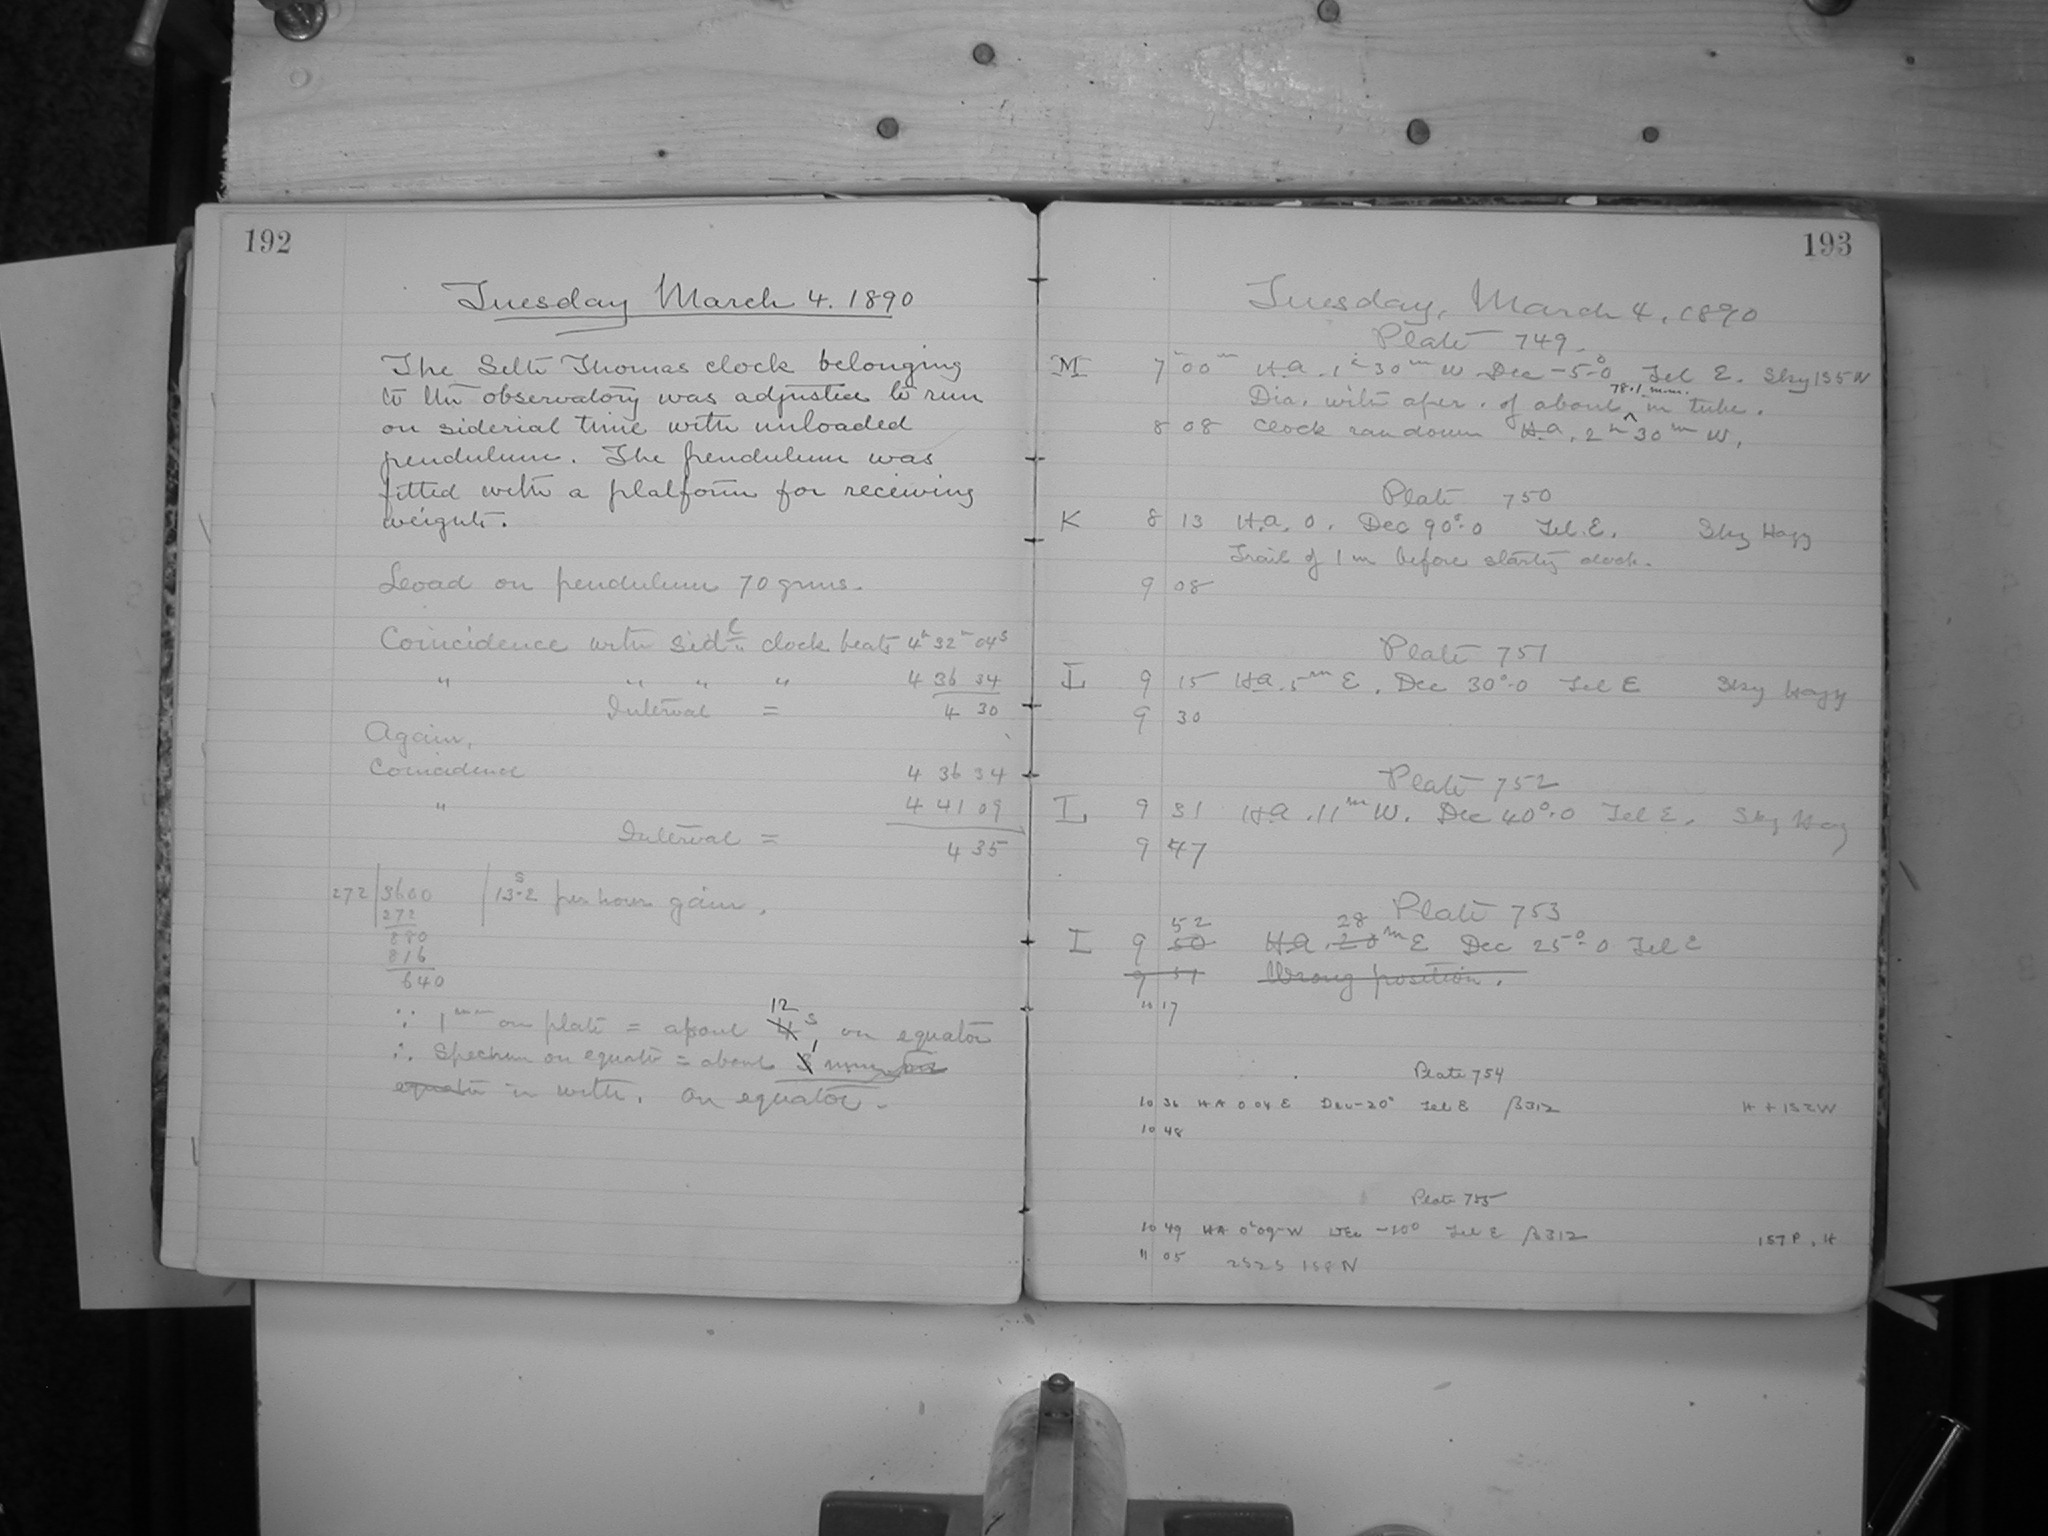 192
Tuesday March 4. 1890
The Seth Thomas clock belonging
to the observatory was adjusted to run
on siderial time with unloaded
pendulum. The pendulum was
fitted with a platform for receiving
weights.
Load on pendulum 70 grms.
Coincidence with sid l clock beats 4h 32m 04s
" " " " 4 36 34
Interval = 4 30
Again,
Coincidence 4 36 34
" 4 41 09
Interval = 4 35
272 | 3600 | 13s.2 per hour gain.
272
880
816
640
12
∵ 1mm on plate = about 4s on equator
∴ Spectrum on equator = about 1
equator in width. on equator.
193
Tuesday, March 4, 1890
Plate 749.
M 7h 00m H.a. 1h 30m W. Dec -5°.0 Tel E. Sky 135 W
Dia. with aper. of about 78.1 m.m. in tube.
8 08 Clock ran down H.a. 2h 30m W.
Plate 750
K 8 13 H.a. 0. Dec 90°.0 Tel. E. Sky Hazy
Trail of 1m before starting clock.
9 08
Plate 751
I 9 15 H.a. 5m E. Dec 30°.0 Tel E Sky Hazy
9 30
Plate 752
I 9 31 H.a. 11m W. Dec 40°.0 Tel E. Sky Hazy
9 47
Plate 753
52 28
I 9 50 H.a. 20m E Dec 25°.0 Tel E
9 51 Wrong position.
10 17
Plate 754
10 36 HA 0 04 E Dec -20° Tel E β312 H + 152 W
10 48
Plate 755
10 49 HA 0h 09m W Dec -10° Tel E β312 157 P. H
11 05 2525 158 N